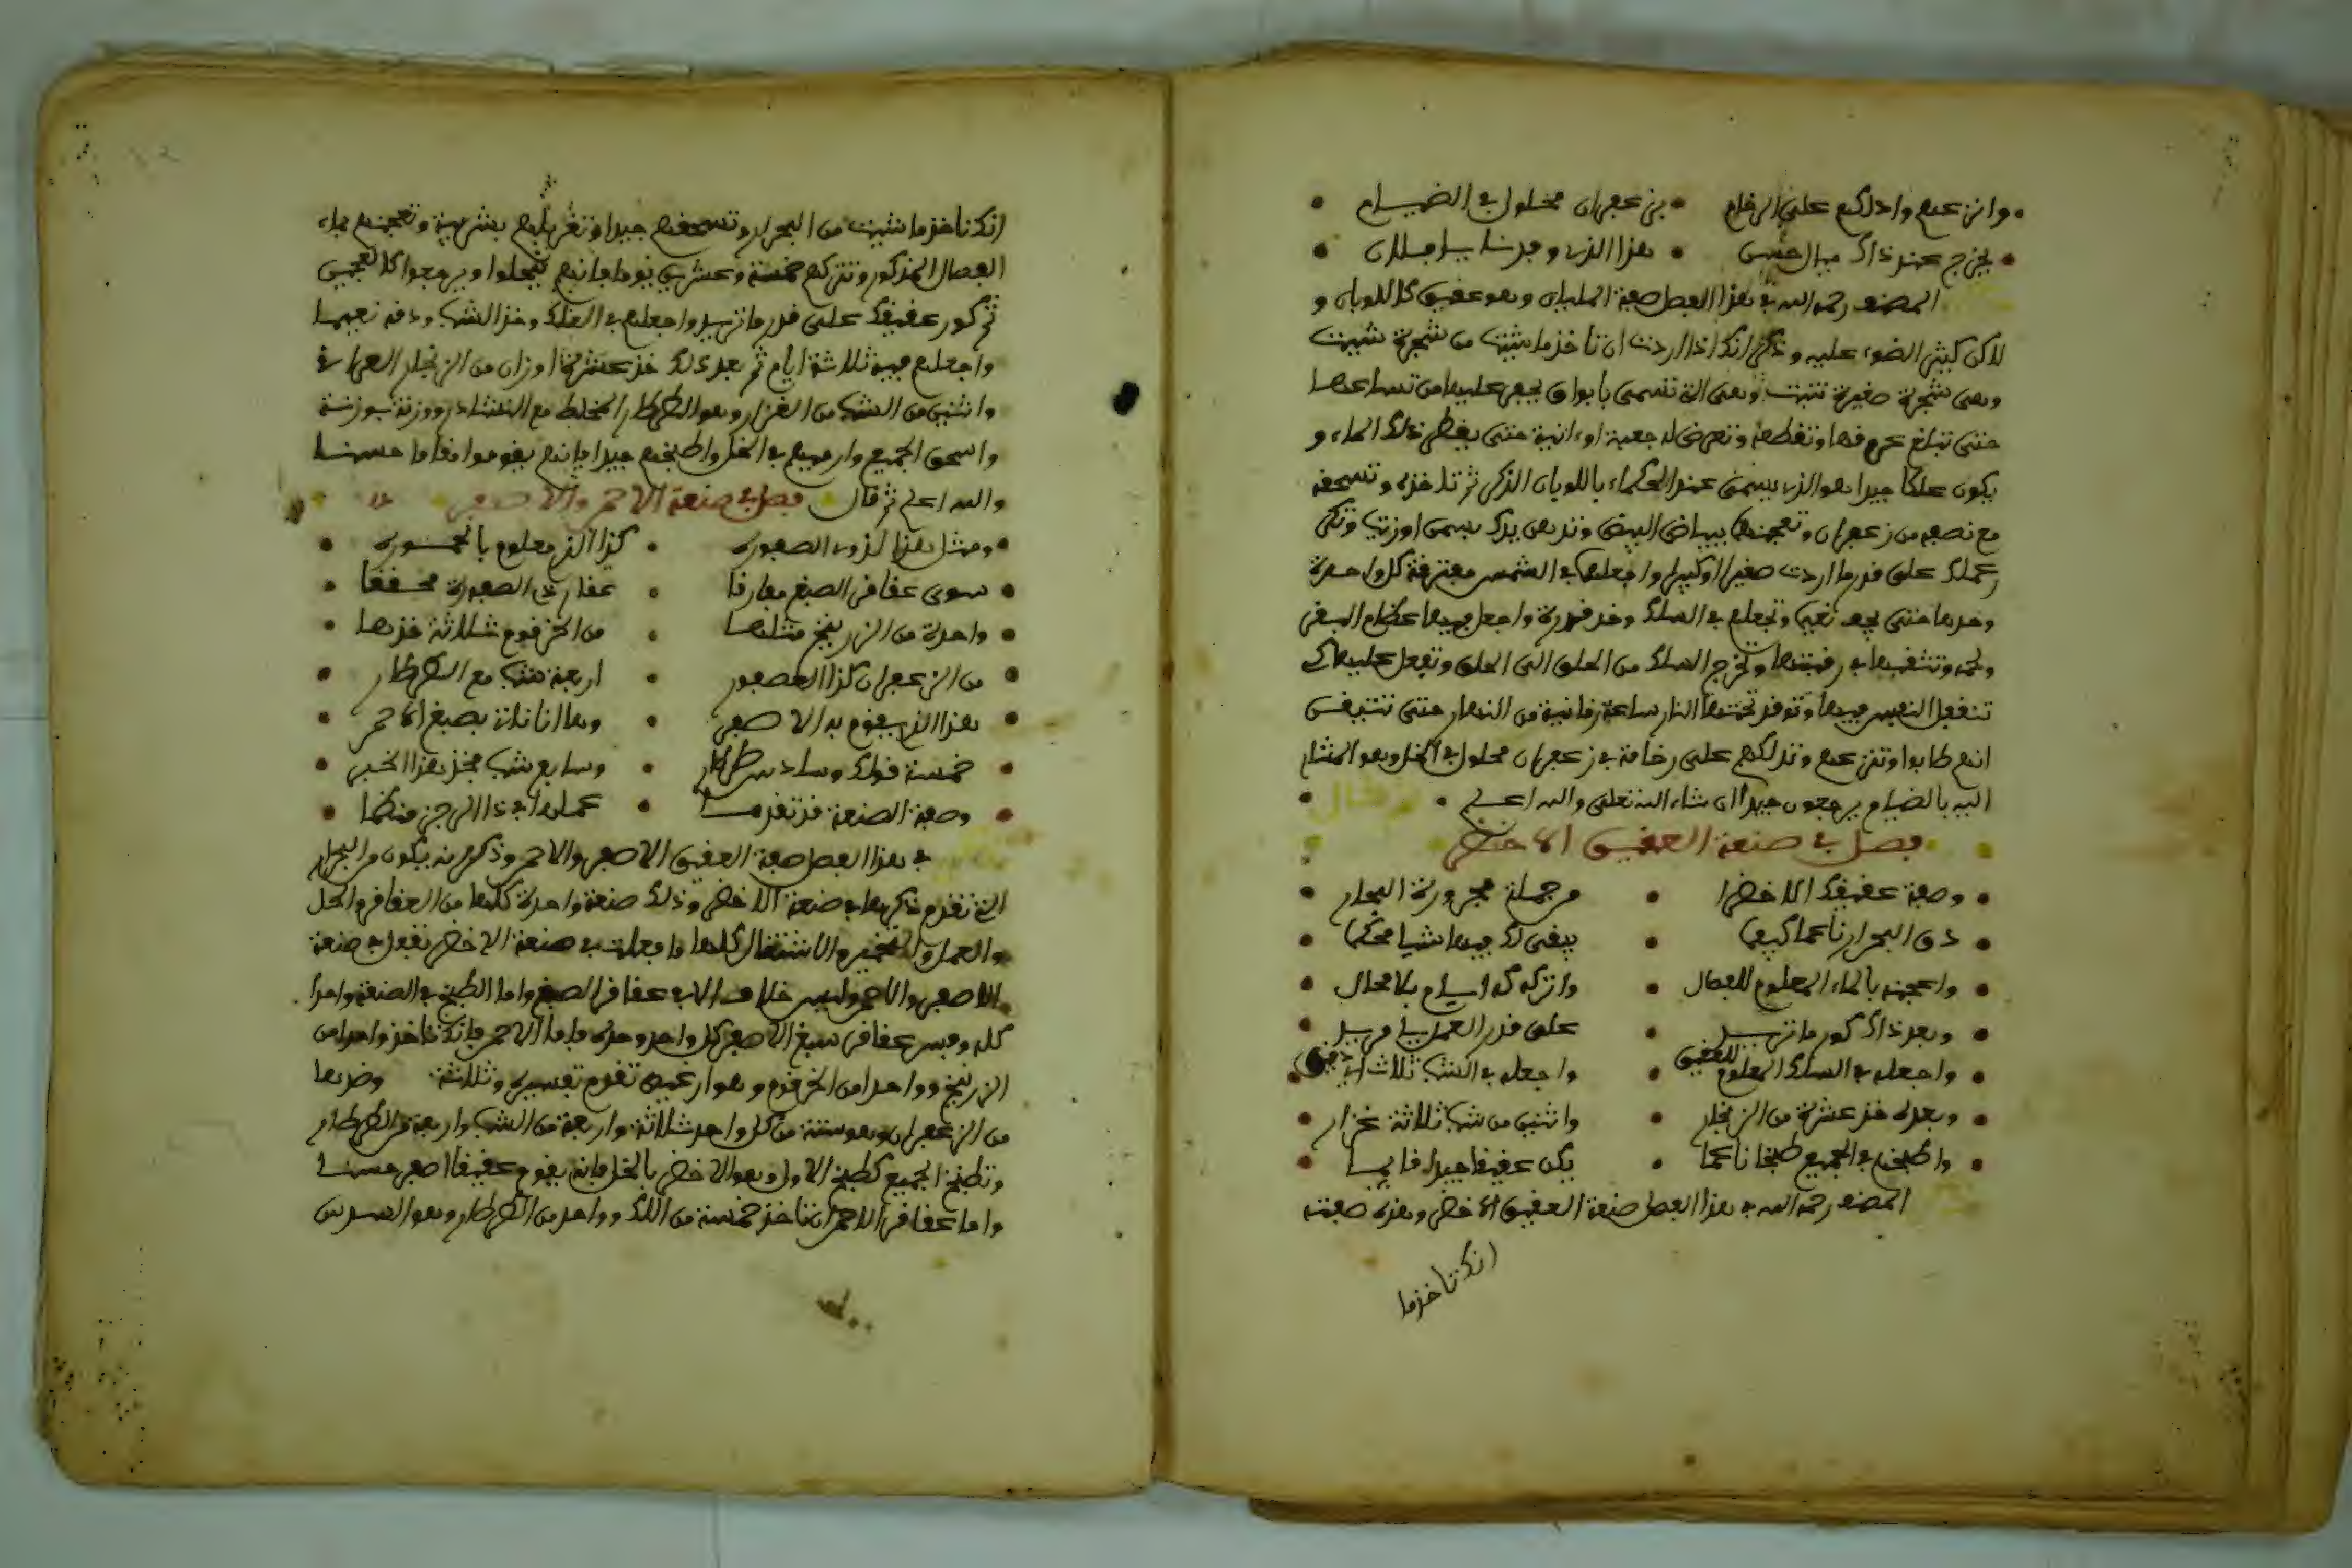 وانزعهم وادلكهم على الرخام • بزعفران محلول في الضيام
يخرج عند ذاك مبال حسن • هذا الذي وجدنا يا مـلان
المصنف رحمه الله في هذا الفصل صفة المليان وهو عقيق كاللوبان و
لاكن كيثر الضوء عليه وذكر انك اذا اردت ان تاخذ ما شيت من شجرة شبيت
وهى شجرة صغيرة تنبت وهى التي تسمى بابواق يحفر عليها من تساعها
حتى تبلغ عروقها وتقطعه وتعرض له جعبة او انية حتى يقطر ذلك الماء و
يكون علكا جيدا هو الذي يسمى عند الحكماء باللوبان الذكر ثم تاخذه وتسحقه
مع نصفه من زعفران وتعجنها ببياض البيض وتدهن يدك بسمن اوزيت وتكر
عملك على قدر ما اردت صغيرا او كبيرا واجعلها في الشمس مفترقة كل واحدة
وحدها حتى يجف نعيم وتجعلهم في السلك وخذ قدرة واجعل فيها عظام البقر
ولحمه وتثقبها في رقبتها وتخرج السلك من الحلق الى الحلق وتقفل عليها كـ
تنقفل النعيس فيها وتوقد تحتها النار ساعة زمانية من النهار حتى تتيقـن
انهم طابوا وتنزعهم وتدلكهم على رخامة بزعفران محلول في الخل وهو المشار
اليه بالضيام يرجعون جيدا ان شاء الله تعلى والله اعلم • ثم قال
فصل في صنعة العقيق الاخضر
وصفة عقيقك الاخضرا • من جملة مجرورة البحار
دق البحرار ناعما كيفما • يبقى لك فيها شيا محكما
واعجنه بالماء المعلوم للفصال • واتركه كه ايـام بلا محال
وبعد ذاك كور ما تريـد • على قدر العمل يا مريد
واجعله في السلك المعلوم للعقيق • واجعله في الشب ثلاث ايام دقيق
وبعده خذ عشرة من الزنجار • واثنين من شب ثلاثة غزار
واطبخهم في الجميع طبخا ناعما • يكن عقيقا جيدا قايما
المصنف رحمه الله في هذا الفصل صنعة العقيق الاخضر وهذه صفته
انك تاخذ ما
انك تاخذ ما شيت من البحرار وتسحقهم جيدا وتغربلهم بشربية وتعجنهم بماء
الفصال المذكور وتتركهم خمسة وعشرين يوما فانهم ينحلوا ويرجعوا كالعجين
ثم كور عقيقك على قدر ما تريد واجعلهم في السلك وخذ الشب ودقه نعيما
واجعلهم فيه ثلاثة ايام ثم بعد ذلك خذ عشرة اوزان من الزنجار العراقي
واثنين من الشب من الغزار وهو الطرطار المخلط مع النشادر ووزنه بوزنـة
واسحق الجميع وارميهم في الخل واطبخهم جيدا فانهم يقوموا مقاما حسنـا
والله اعلم ثم قال فصل في صنعة الاحمر والاصفر
ومثل هذا لزوم الصفورة • كذا الذي معلوم بالحمـورة
سوى عقاقر الصبغ مفارقا • عقارى الصفرة محـققا
واحدة من الزرنيخ مثلها • من الخرقوم شلاثة خذها
من الزعفران كذا العصفور • اربعة شب مع الطرطار
هذا الذي يقوم به الاصفر • وها انا ناتي بصبغ الاحمر
خمسة فولك وسادس طرطار • وسابع شب فخذ هذا الخبر
وصفة الصنعة قد تقدمـت • عملها في ذا الرجز منظما
في هذا الفصل صفة العقيق الاصفر والاحمر وذكر انه يكون من البحرار
التي تقدم ذكرها في صنعة الاخضر وذلك صنعة واحدة كلها من العقاقر والحل
والعمل والتخمير والاشتغال كلها ما فعلت في صنعة الاخضر تفعل في صنعة
الاصفر والاحمر وليس خلاف الا في عقاقر الصبغ واما الطبخ في الصنعة واحدا
كله وفسر عقاقر سبغ الاصفر كل واحد وحده فاما الاحمر فانك تاخذ واحدا من
الزرنيخ وواحدا من الخرقوم وهو ارعيبه تقدم تفسيره وثلاثة وضدها
من الزعفران وهو ستة من كل واحد شلاثة واربعة من الشب واربعة من الطرطار
وتطبخ الجميع كطبخ الاول وهو الاخضر بالخل فانه يقوم عقيقا اصفر حسنـا
واما عقاقر الاحمر ان تاخذ خمسة من اللك وواحد من الطرطار وهو السدس